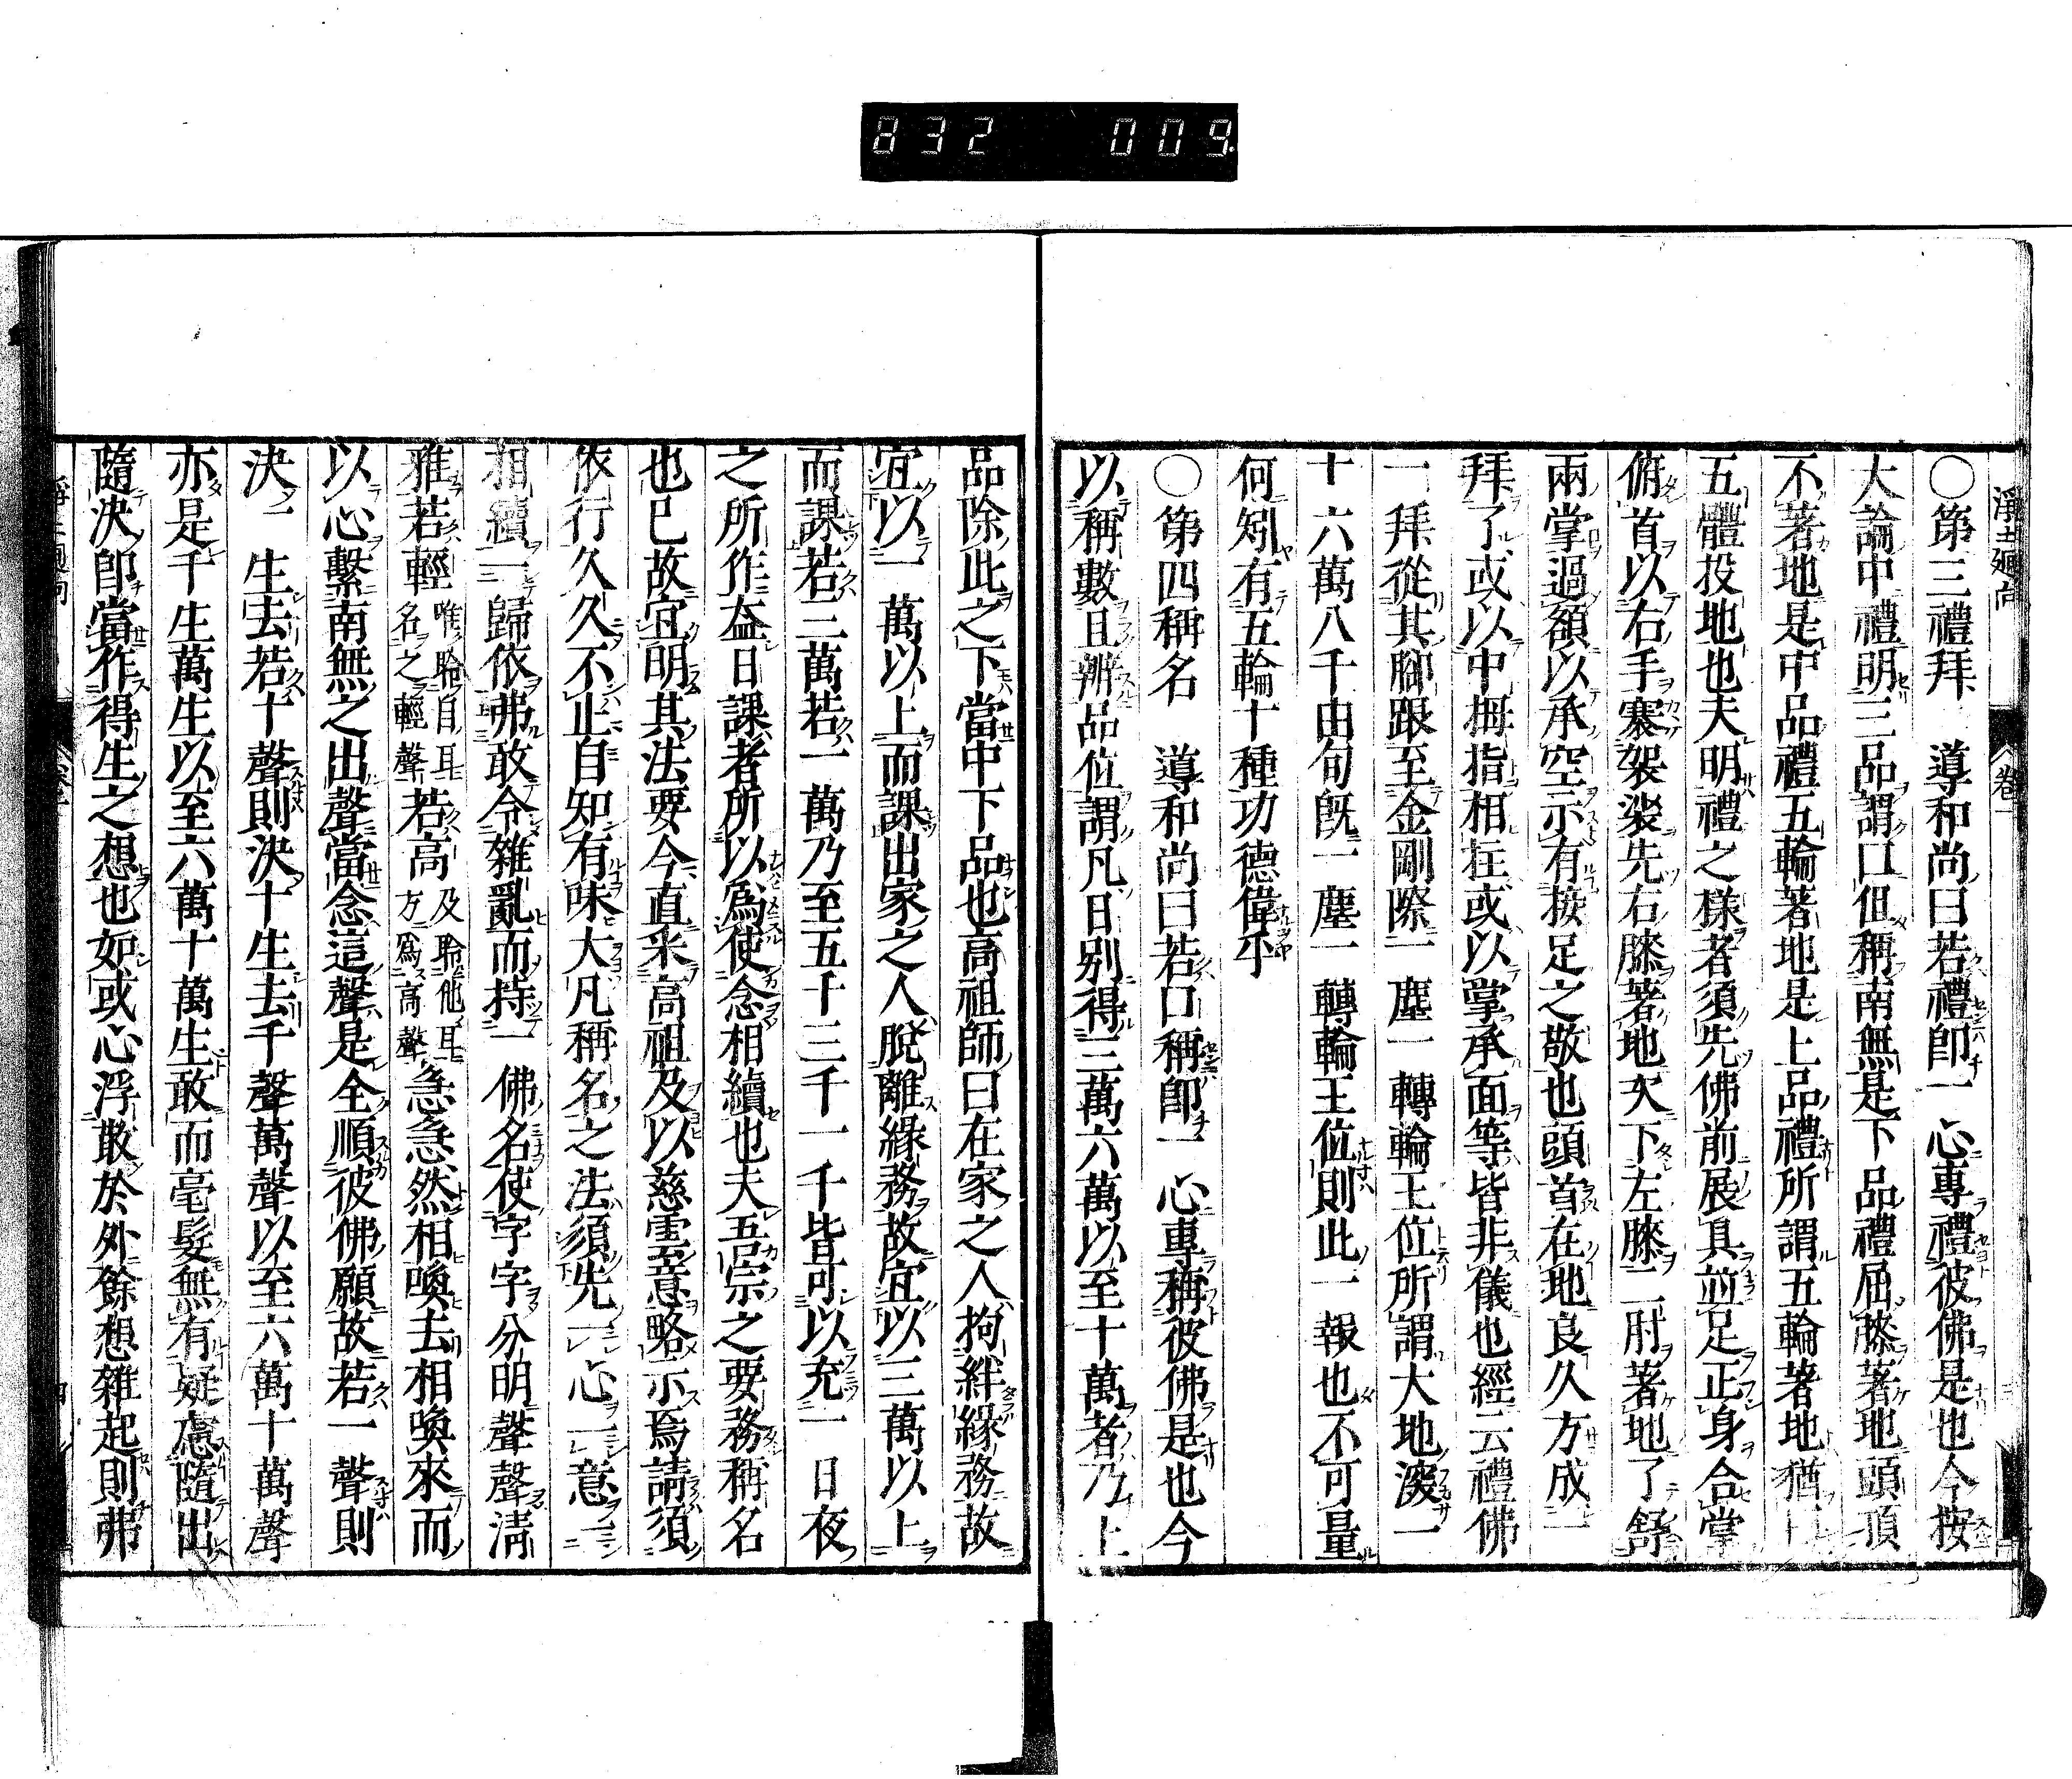 832 009
淨土廻向 卷一
○第三禮拜 導和尚曰若禮即一心專禮彼佛是也今按
大論中禮明三品謂口但稱南無是下品禮屈膝著地頭頂
不著地是中品禮五輪著地是上品禮所謂五輪著地猶
五體投地也夫明禮之樣者須先佛前展具並足正身合掌
俯首以右手褰袈裟先右膝著地次下左膝二肘著地了舒
兩掌過額以承空示有接足之敬也頭首在地良久方成一
拜了或以中拇指相拄或以掌承面等皆非儀也經云禮佛
一拜從其脚跟至金剛際一塵一轉輪王位所謂大地深一
十六萬八千由旬既一塵一轉輪王位則此一報也不可量
何矧有五輪十種功德偉乎
○第四稱名 導和尚曰若口稱即一心專稱彼佛是也今
以稱數且辨品位謂凡日別得三萬六萬以至十萬者乃上
品除此之下當中下品也高祖師曰在家之人拘絆緣務故
宜以一萬以上而課出家之人脫離緣務故宜以三萬以上
而課若二萬若一萬乃至五千三千一千皆可以充一日夜
之所作益日課者所以爲使念相續也夫吾宗之要務稱名
也已故宜明其法要今直采高祖及以慈雲意略示焉請須
依行久久不止自知有味大凡稱名之法須先一心一意
相續一歸依弗敢令雜亂而持一佛名使字字分明聲聲淸
雅若輕唯聆自耳名之輕聲若高及聆他耳方爲高聲急急然相喚去相喚來而
以心繫南無之出聲當念這聲是全順彼佛願故若一聲則
決一生去若十聲則決十生去千聲萬聲以至六萬十萬聲
亦是千生萬生以至六萬十萬生敢而毫髮無有疑慮隨出
隨決即當作得生之想也如或心浮散於外餘想雜起則弗